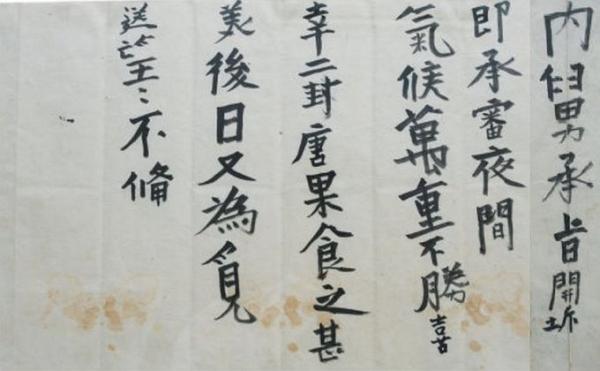 內舅承旨開坼
即承審夜間
氣候萬重不勝喜
幸二封唐果食之甚
美後日又為覓
送望〻不俻